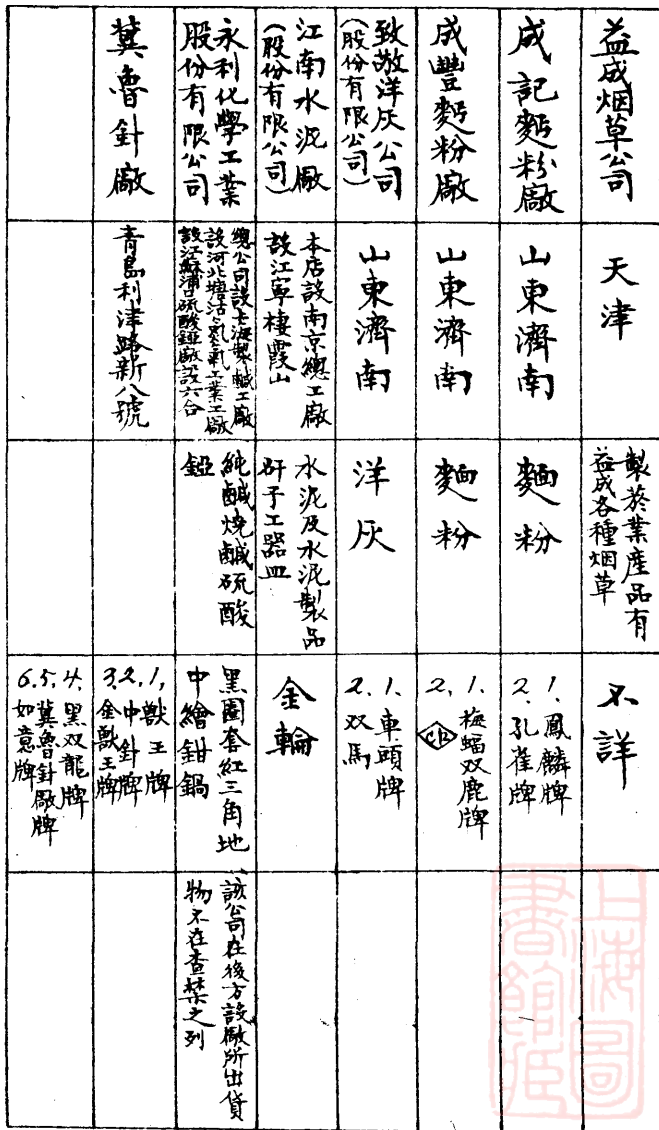 益成烟草公司
天津
製菸業產品有
益成各種烟草
不詳
成記麵粉廠
山東濟南
麵粉
1. 鳳麟牌
2. 孔雀牌
成豐麵粉廠
山東濟南
麵粉
1. 梅蝠双鹿牌
2.
致敬洋灰公司
(股份有限公司)
山東濟南
洋灰
1. 車頭牌
2. 双馬
江南水泥廠
(股份有限公司)
本店設南京總工廠
設江寧棲霞山
水泥及水泥製品
矸子工器皿
金輪
永利化學工業
股份有限公司
總公司設上海製鹹工廠
設河北塘沽氮氣工業工廠
設江蘇浦口硫酸錏廠設六合
純鹹燒鹹硫酸
錏
黑圈套紅三角地
中繪鉗鍋
該公司在後方設廠所出貨
物不在查禁之列
冀魯針廠
青島利津路新八號
1. 獸王牌
2. 中針牌
3. 金獸王牌
4. 黑双龍牌
5. 冀魯針廠牌
6. 如意牌